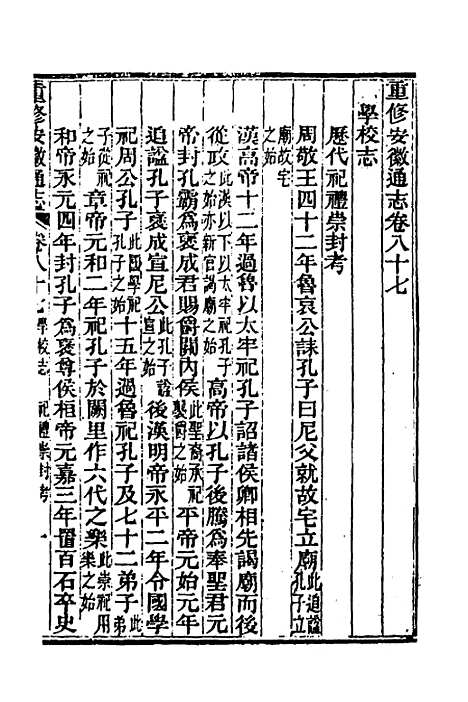 重修安徽通志卷八十七
學校志
歷代祀禮崇封考
周敬王四十二年魯哀公誄孔子曰尼父就故宅立廟此追諡孔子立
廟故宅之始
漢高帝十二年過魯以太牢祀孔子詔諸侯卿相先謁廟而後
從政此漢以下以太牢祀孔子之始亦新官謁廟之始高帝以孔子後騰為奉聖君元
帝封孔霸為褒成君賜爵關內侯此聖裔承祀襲爵之始平帝元始元年
追諡孔子褒成宣尼公此孔子諡宣之始後漢明帝永平二年令國學
祀周公孔子此國學祀孔子之始十五年過魯祀孔子及七十二弟子此弟
子從祀之始章帝元和二年祀孔子於闕里作六代之樂此崇祀用樂之始
和帝永元四年封孔子為褒尊侯桓帝元嘉三年置百石卒史
重修安徽通志 卷八十七 學校志 祀禮崇封考 一